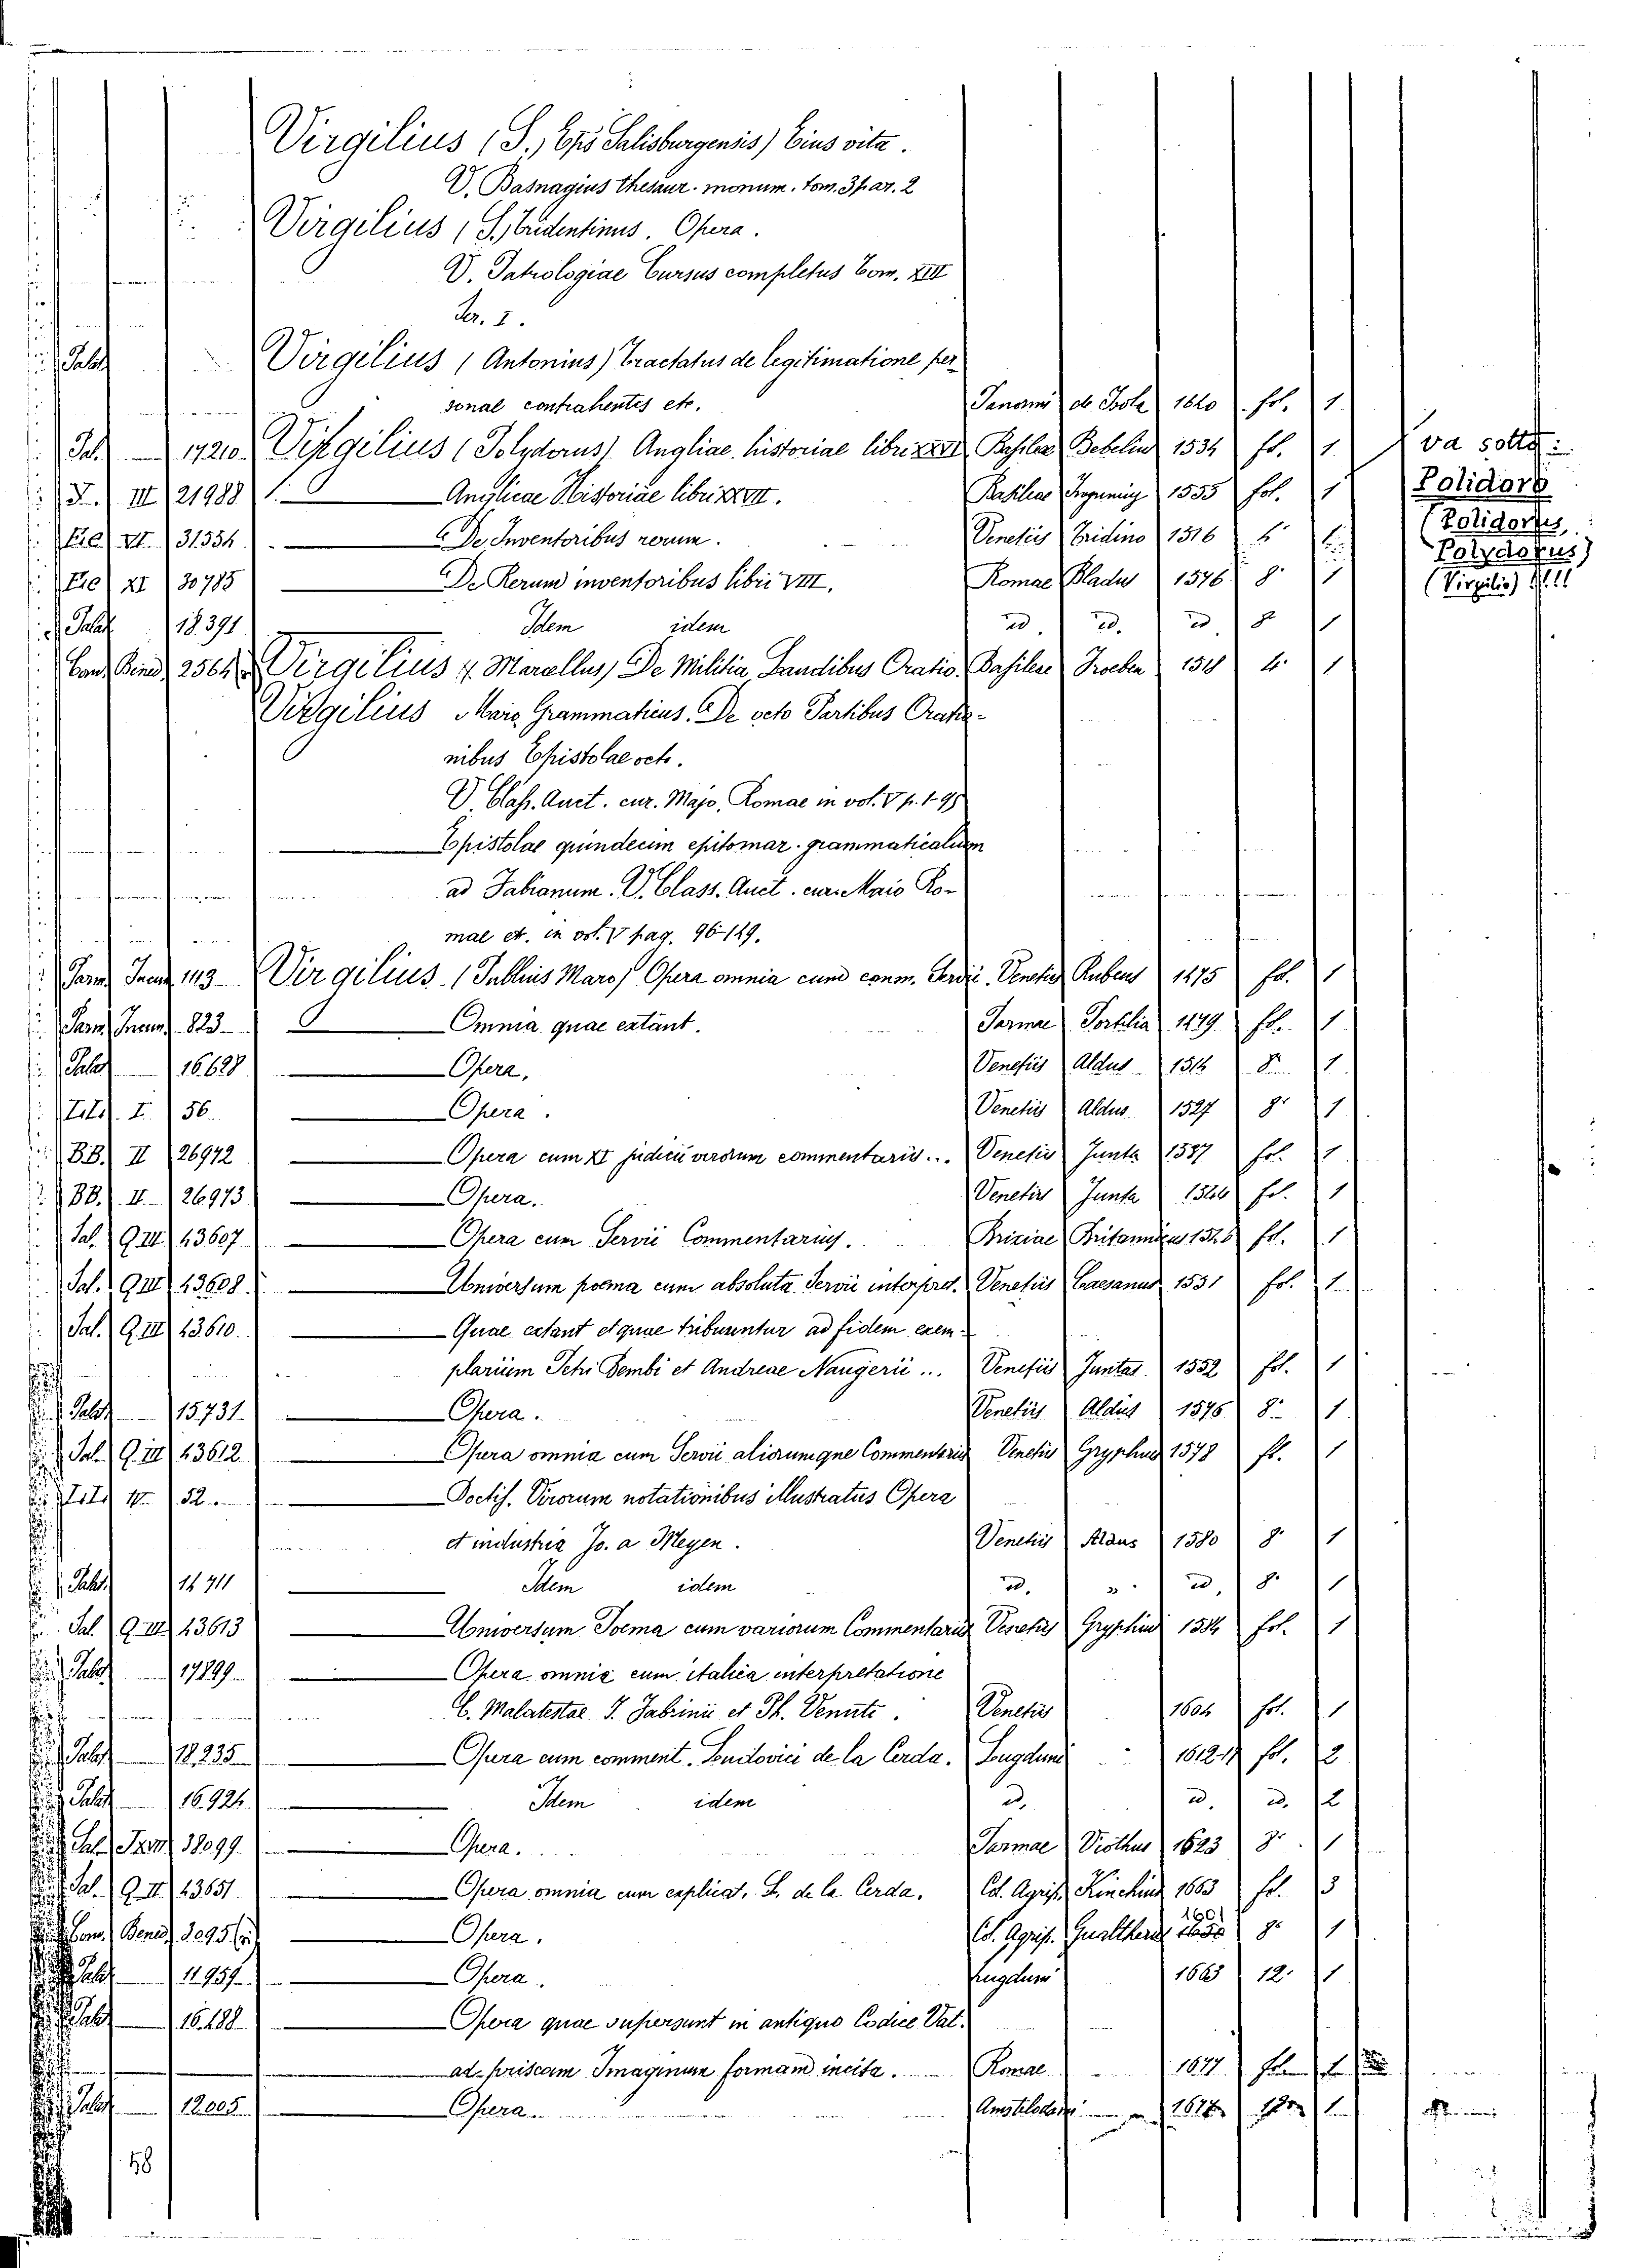 Virgilius (S., Eps Salisburgensis) Eius vita.
V. Basnagius thesaur. monum. tom. 3 par. 2
Virgilius (S.) Tridentinus. Opera.
V. Patrologiae Cursus completus Tom. XIII
Ser. I.
Palat Virgilius (Antonius) Tractatus de legitimatione per
sonal contrahentes etc. 1620 fol. 1
Pal. 17210 Virgilius (Polydorus) Angliae historiae libri XXVI Basileae Bebelius 1534 fol. 1 va sotto:
III 21988 Anglicae Historiae libri XXVII. Basileae 1555 fol. 1 Polidoro
VI. 31334 De Inventoribus rerum. Venetiis Tridino 1516 (Polidorus,
XI 30785 De Rerum inventoribus libri VIII. Romae Bladus 1576 8° 1 Polydorus)
Palat 18391 Idem idem id. id. id 8° 1 (Virgilio) !!!!
2564 Virgilius Marcellus) De Militiae Laudibus Oratio. Basileae Froben 1518 4° 1
Virgilius Maro Grammaticus. De octo Partibus Oratio-
nibus Epistolae octo.
V. Class. Auct. cur. Majo, Romae in vol. V p. 1-95
Epistolae quindecim epitomar. grammaticalium
ad Fabianum. V. Class. Auct. cur. Maio Ro-
mae et. in vol. V pag. 96-149.
Parm 113 Virgilius (Publius Maro) Opera omnia cum comm. Servii. Venetiis Rubeus 1475 fol. 1
Parm 823 Omnia quae extant. Parmae Portilia 1479 fol. 1
Palat 16628 Opera. Venetiis Aldus 1514 8° 1
I. 56 Opera. Venetiis Aldus 1527 8° 1
BB. II 26972 Opera cum XI judicii virorum commentariis... Venetiis Junta 1537 fol. 1
BB. II. 26973 Opera. Venetiis Junta fol. 1
Pal. Q III 43607 Opera cum Servii Commentariis. Brixiae Britannicus fol. 1
Pal. Q III 43608 Universum poema cum absoluta Servii interpret. Venetiis Caesanus 1531 fol. 1
Pal. Q III 43610 Quae extant et quae tribuuntur ad fidem exem-
plarium Petri Bembi et Andreae Naugerii ... Venetiis Juntas 1552 fol. 1
Palat 15731 Opera. Venetiis Aldus 1576 8° 1
Pal. Q. III 43612 Opera omnia cum Servii aliorumque Commentariis Venetiis Gryphus 1578 fl. 1
52 Doctis. Virorum notationibus illustratus Opera
et industria Jo. a Meyen. Venetiis Aldus 1580 8° 1
Palat Idem idem id. » id. 8° 1
Pal. Q III 43613 Universum Poema cum variorum Commentariis Venetiis Gryphius fol. 1
Palat 17899 Opera omnia cum italica interpretatione
C. Malatestae F. Fabrinii et Ph. Venuti. Venetiis 1604 fol. 1
Palat 18235 Opera cum comment. Ludovici de la Cerda. Lugduni 1612-17 fol. 2
Palat 16924 Idem idem id. id. id. 2
Pal. 38099 Opera. Parmae Viothus 1623 8° 1
Pal. Q II 43651 Opera omnia cum explicat. L. de la Cerda. Col. Agrip. Kinchius 1663 fl. 3
Bened. 3095 Opera. Col. Agrip. Gualtherus 1601 8° 1
Palat 11959 Opera. Lugduni 1663 12. 1
Palat 16188 Opera quae supersunt in antiquo Codice Vat.
ad priscam Imaginum formam incisa. Romae 1677 fol. 1
Palat 12005 Opera. Amstelodami 1
58